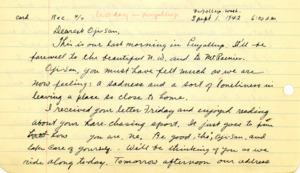 card Rec. 9/0 last day in Puyallup Puyallup Wash.
Sept 1, 1942 6:00 AM
Dearest Oji-san,
This is our last morning in Puyallup. It'll be
farewell to the beautiful N.W. and to Mt Rainier.
Oji-san, you must have felt much as we are
now feeling: a sadness and a sort of loneliness in
leaving a place so close to home.
I received your letter Friday and enjoyed reading
about your hare-chasing sport. It just goes to
how you are, ne. Be good, Oji-san, and
take care of yourself. We'll be thinking of you as we
ride along today. Tomorrow afternoon our address